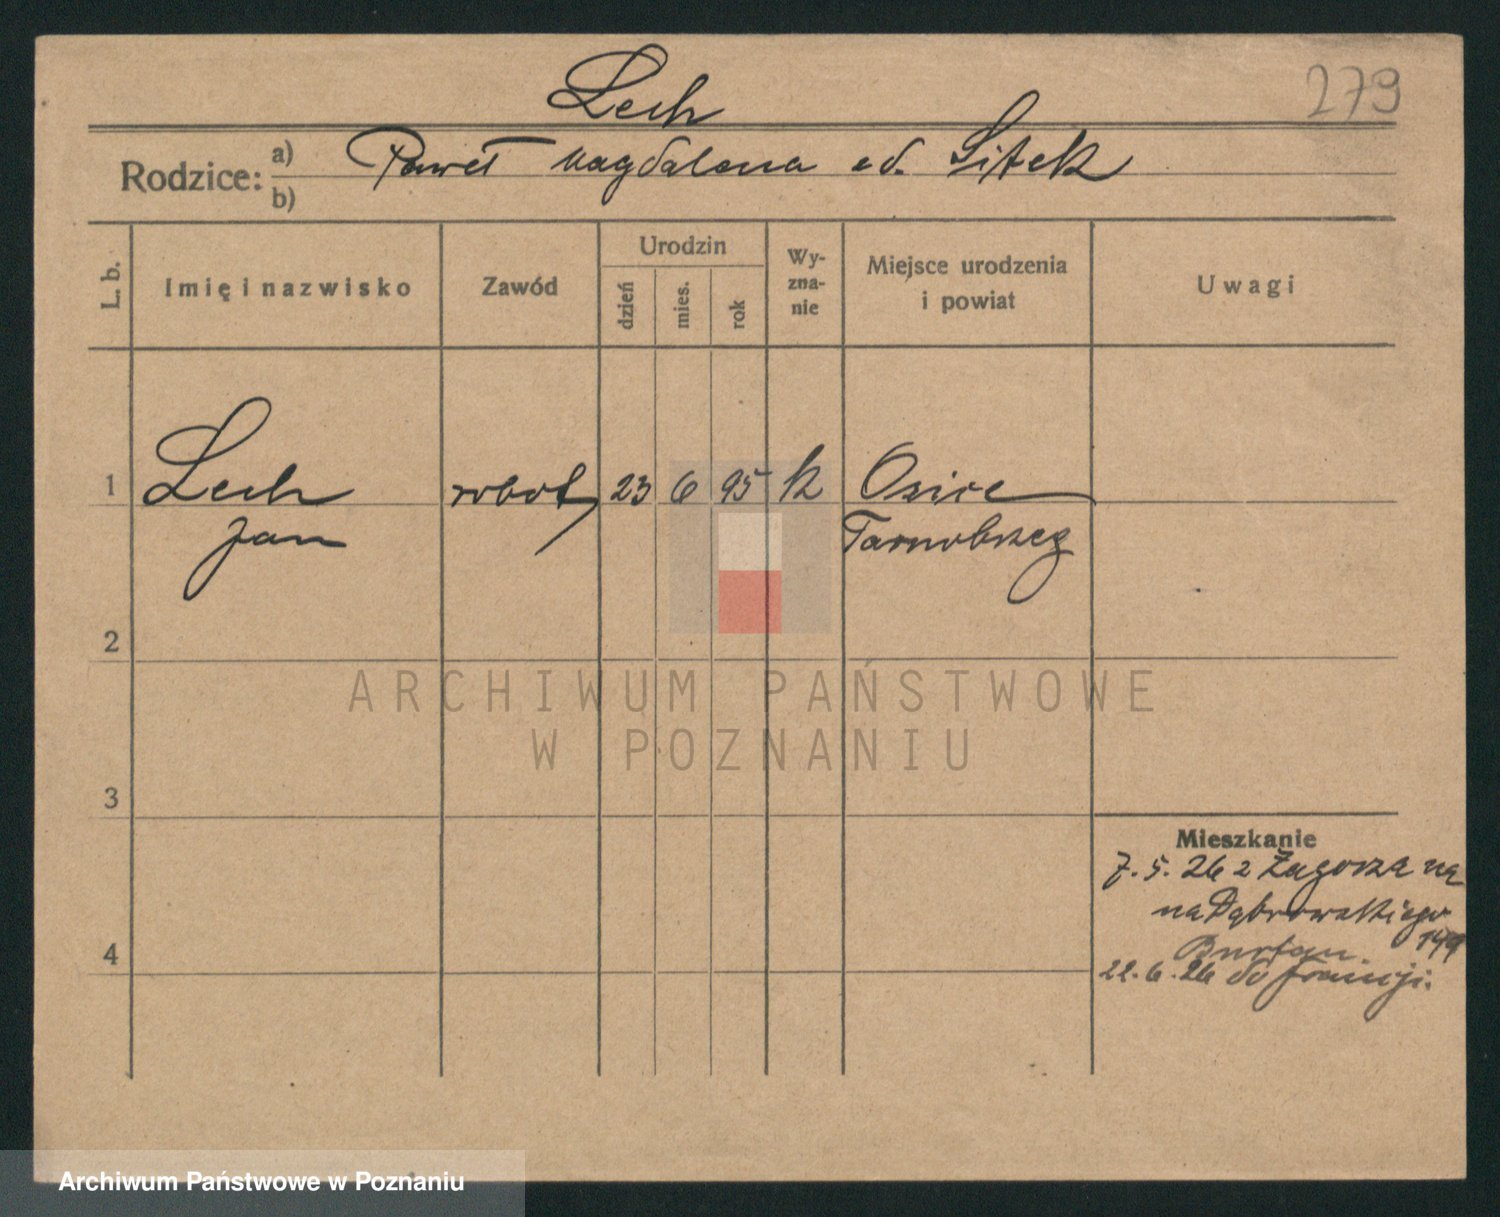 279
Lech
Rodzice: a) Paweł Magdalena zd. Sitek
b)
L. b. Imię i nazwisko Zawód Urodzin dzień mies. rok Wyznanie Miejsce urodzenia i powiat Uwagi
1 Lech robot, 23 6 95 k Osice
Jan Tarnobrzeg
2
3
4
Mieszkanie
7. 5. 26 z Zagorza na
na Dąbrowskiego
149
22. 6. 26 do Francji.
ARCHIWUM PAŃSTWOWE
W POZNANIU
Archiwum Państwowe w Poznaniu